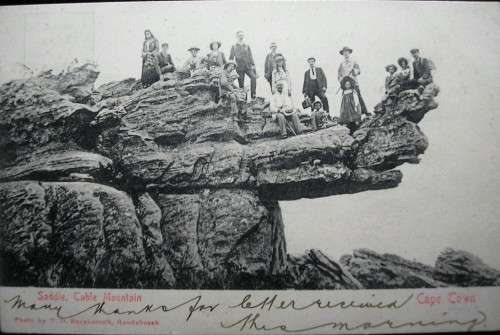 Saddle, Table Mountain
Cape Town
Photo by T. D. Ravenscroft, Rondebosch
Many thanks for letter received
this morning